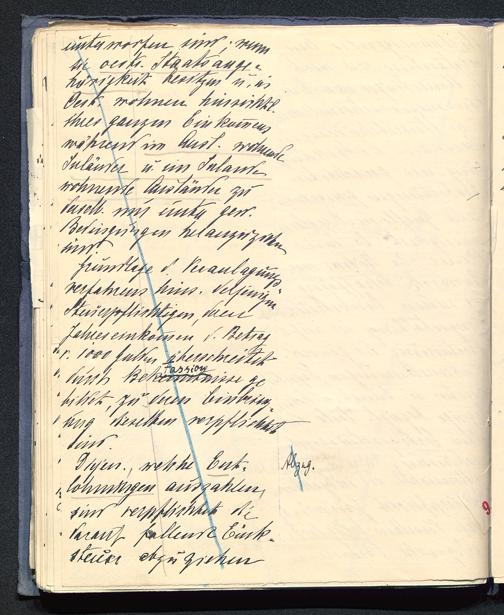 unterworfen sind, wenn
sie oestr. Staatsange-
hörigkeit besitzen u. in
Oest. wohnen hinsichtl.
ihres ganzen Einkomens
während im Ausl. wohnende
Inländer u. im Inlande
wohnende Ausländer zu
besch. nur unter gew.
Bedingungen heranzuziehen
sind
Grundlage d. Veranlagungs
verfahrens hins. derjenigen
Steuerpflichtigen, deren
Jahreseinkommen d. Betrag
v. 1000 Gulden überschreitet
Fassion
durch Bekenntnisse ge
bildet, zu deren Einbrin
gung dieselben verpflichtet
sind.
Diejen., welche Ent-
lohnungen auszahlen,
Abzug.
sind verpflichtet die
darauf fallende Eink-
steuer abzuziehen